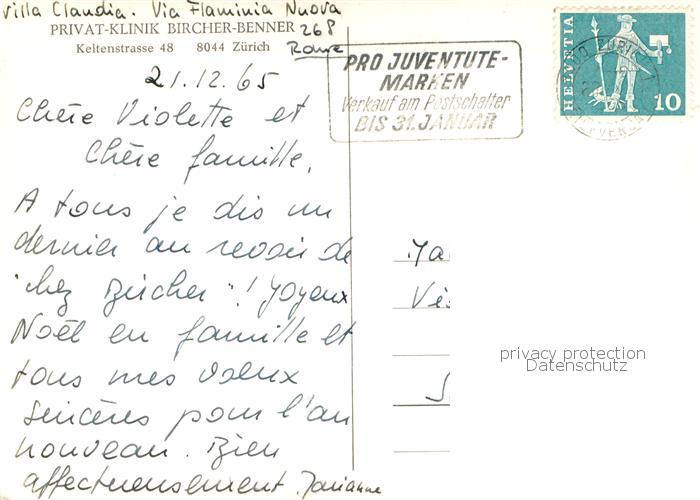 Villa Claudia. Via Flaminia Nuova
268
Rome
PRIVAT-KLINIK BIRCHER-BENNER
Keltenstrasse 48 8044 Zürich
21.12.65
Chère Violette et
Chère famille,
A tous je dis un
dernier au revoir de
"chez Bircher"! Joyeux
Noël en famille et
tous mes voeux
sincères pour l'an
nouveau. Bien
affectueusement.
PRO JUVENTUTE-
MARKEN
Verkauf am Postschalter
BIS 31. JANUAR
HELVETIA
10
privacy protection
Datenschutz